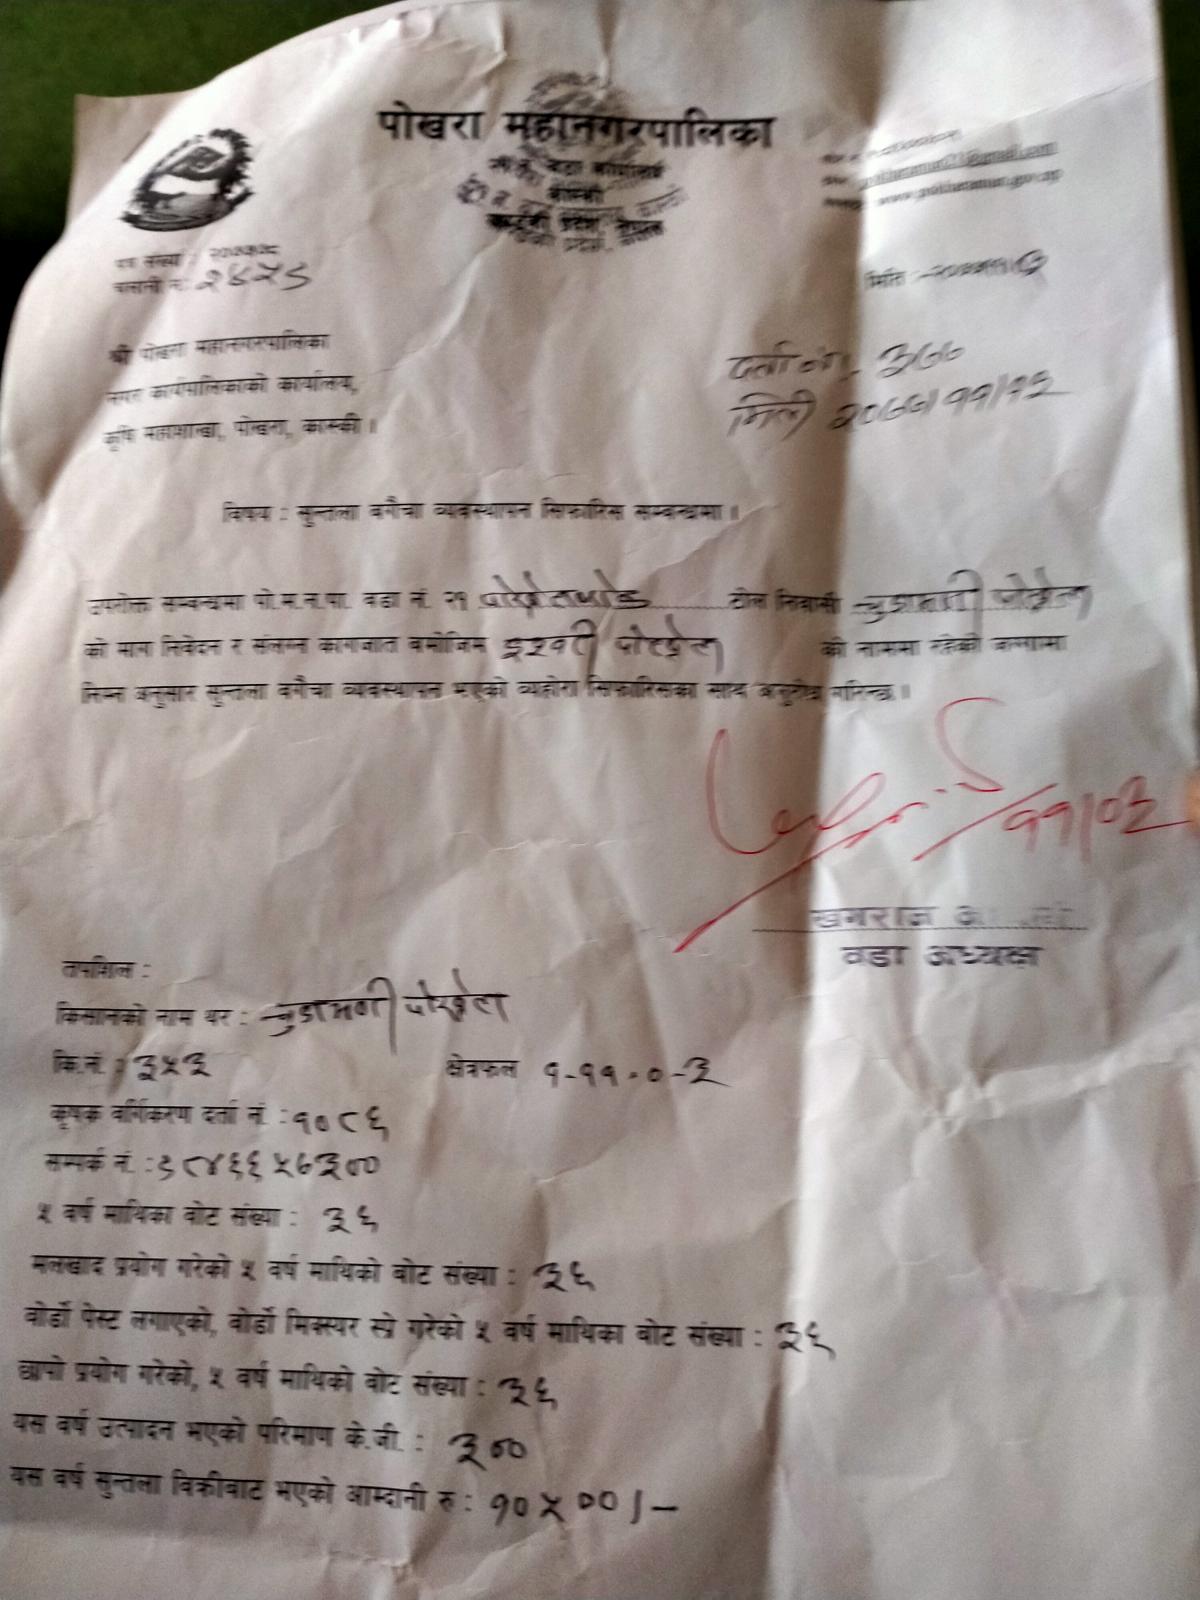 पोखरा महानगरपालिका
वडा कार्यालय
कास्की
गण्डकी प्रदेश, नेपाल
www.pokharamun.gov.np
पत्र संख्या :
चलानी नं.:
मिति :-
श्री पोखरा महानगरपालिका
नगर कार्यपालिकाको कार्यालय,
कृषि महाशाखा, पोखरा, कास्की ।
दर्ता नं. ३७७
मिति २०७७/११/१३
विषय : सुन्तला बगैंचा व्यवस्थापन सिफारिस सम्बन्धमा ।
उपरोक्त सम्बन्धमा पो.म.न.पा. वडा नं. २१ टोल निवासी चुडामणी पोख्रेल
को माग निवेदन र संलग्न कागजात बमोजिम पोख्रेल को नाममा रहेको जग्गामा
निम्न अनुसार सुन्तला बगैंचा व्यवस्थापन भएको व्यहोरा सिफारिसका साथ अनुरोध गरिन्छ ।
११/०३
खगराज
वडा अध्यक्ष
तपशिल :
किसानको नाम थर : चुडामणी पोख्रेल
कि.नं. : ३५३ क्षेत्रफल १-११-०-३
कृषक वर्गिकरण दर्ता नं. : १०८६
सम्पर्क नं. : ९८४६६५७३००
५ वर्ष माथिका बोट संख्या : ३६
मलखाद प्रयोग गरेको ५ वर्ष माथिको बोट संख्या : ३६
बोर्डो पेस्ट लगाएको, बोर्डो मिक्स्चर स्प्रे गरेको ५ वर्ष माथिका बोट संख्या : ३६
छापो प्रयोग गरेको, ५ वर्ष माथिको बोट संख्या : ३६
यस वर्ष उत्पादन भएको परिमाण के.जी. : ३००
यस वर्ष सुन्तला विक्रीबाट भएको आम्दानी रु : १०५००/-